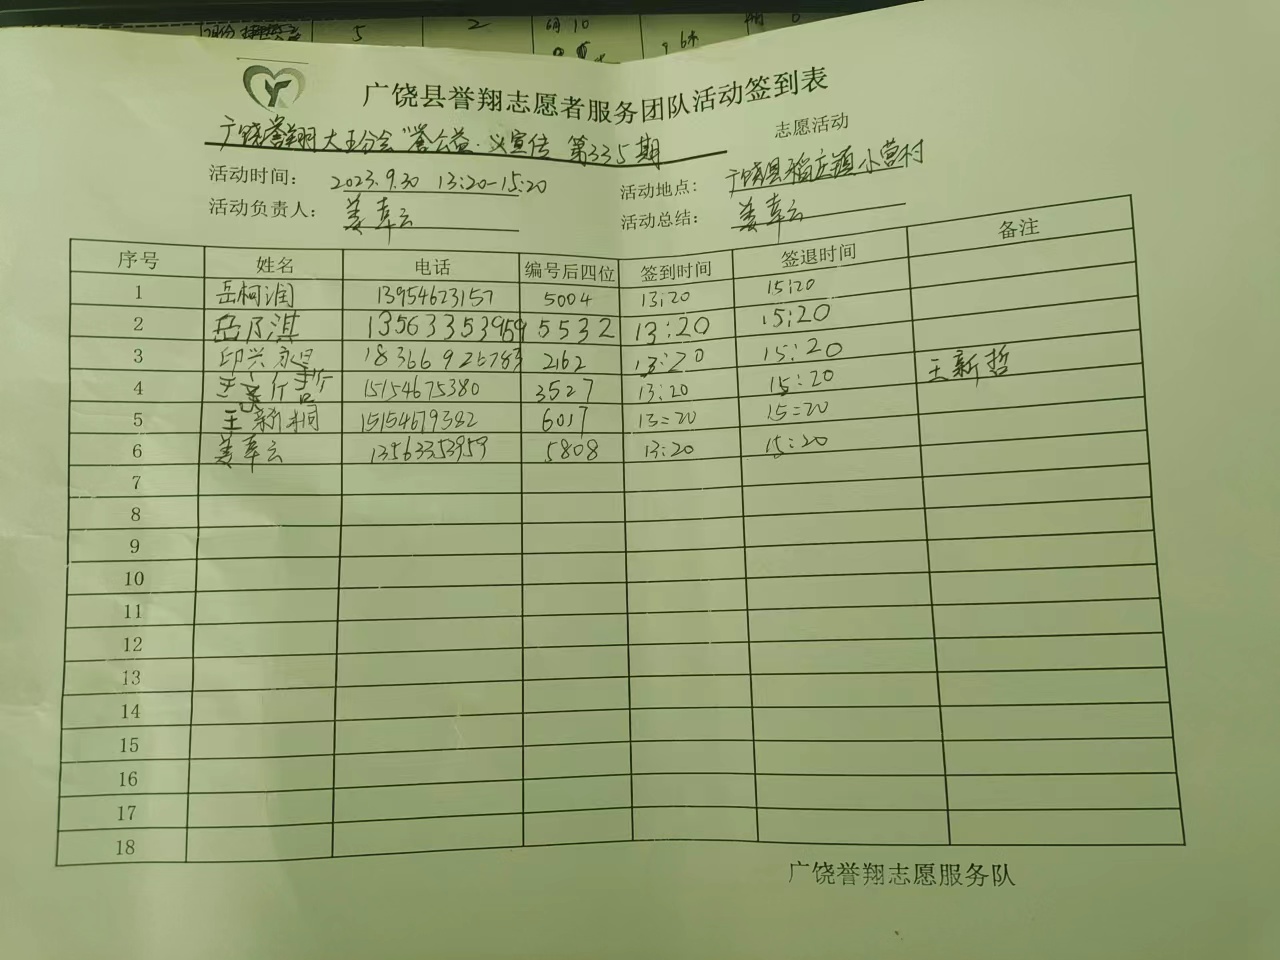 5 2 6月10
广饶县誉翔志愿者服务团队活动签到表
广饶誉翔大王分会“誉公益·义宣传 第335期 志愿活动
活动时间： 2023.9.30 13:20-15:20 活动地点: 广饶县稻庄镇小营村
活动负责人： 姜幸云 活动总结: 姜幸云
序号 姓名 电话 编号后四位 签到时间 签退时间 备注
1 岳柯润 13954623157 5004 13:20 15:20
2 岳乃淇 13563353959 5532 13:20 15:20
3 印兴 2162 13:20 15:20
4 15154675380 3527 13:20 15:20 王新哲
5 王新桐 15154679382 6017 13=20 15=20
6 姜幸云 13563353959 5808 13:20 15:20
7
8
9
10
11
12
13
14
15
16
17
18
广饶誉翔志愿服务队